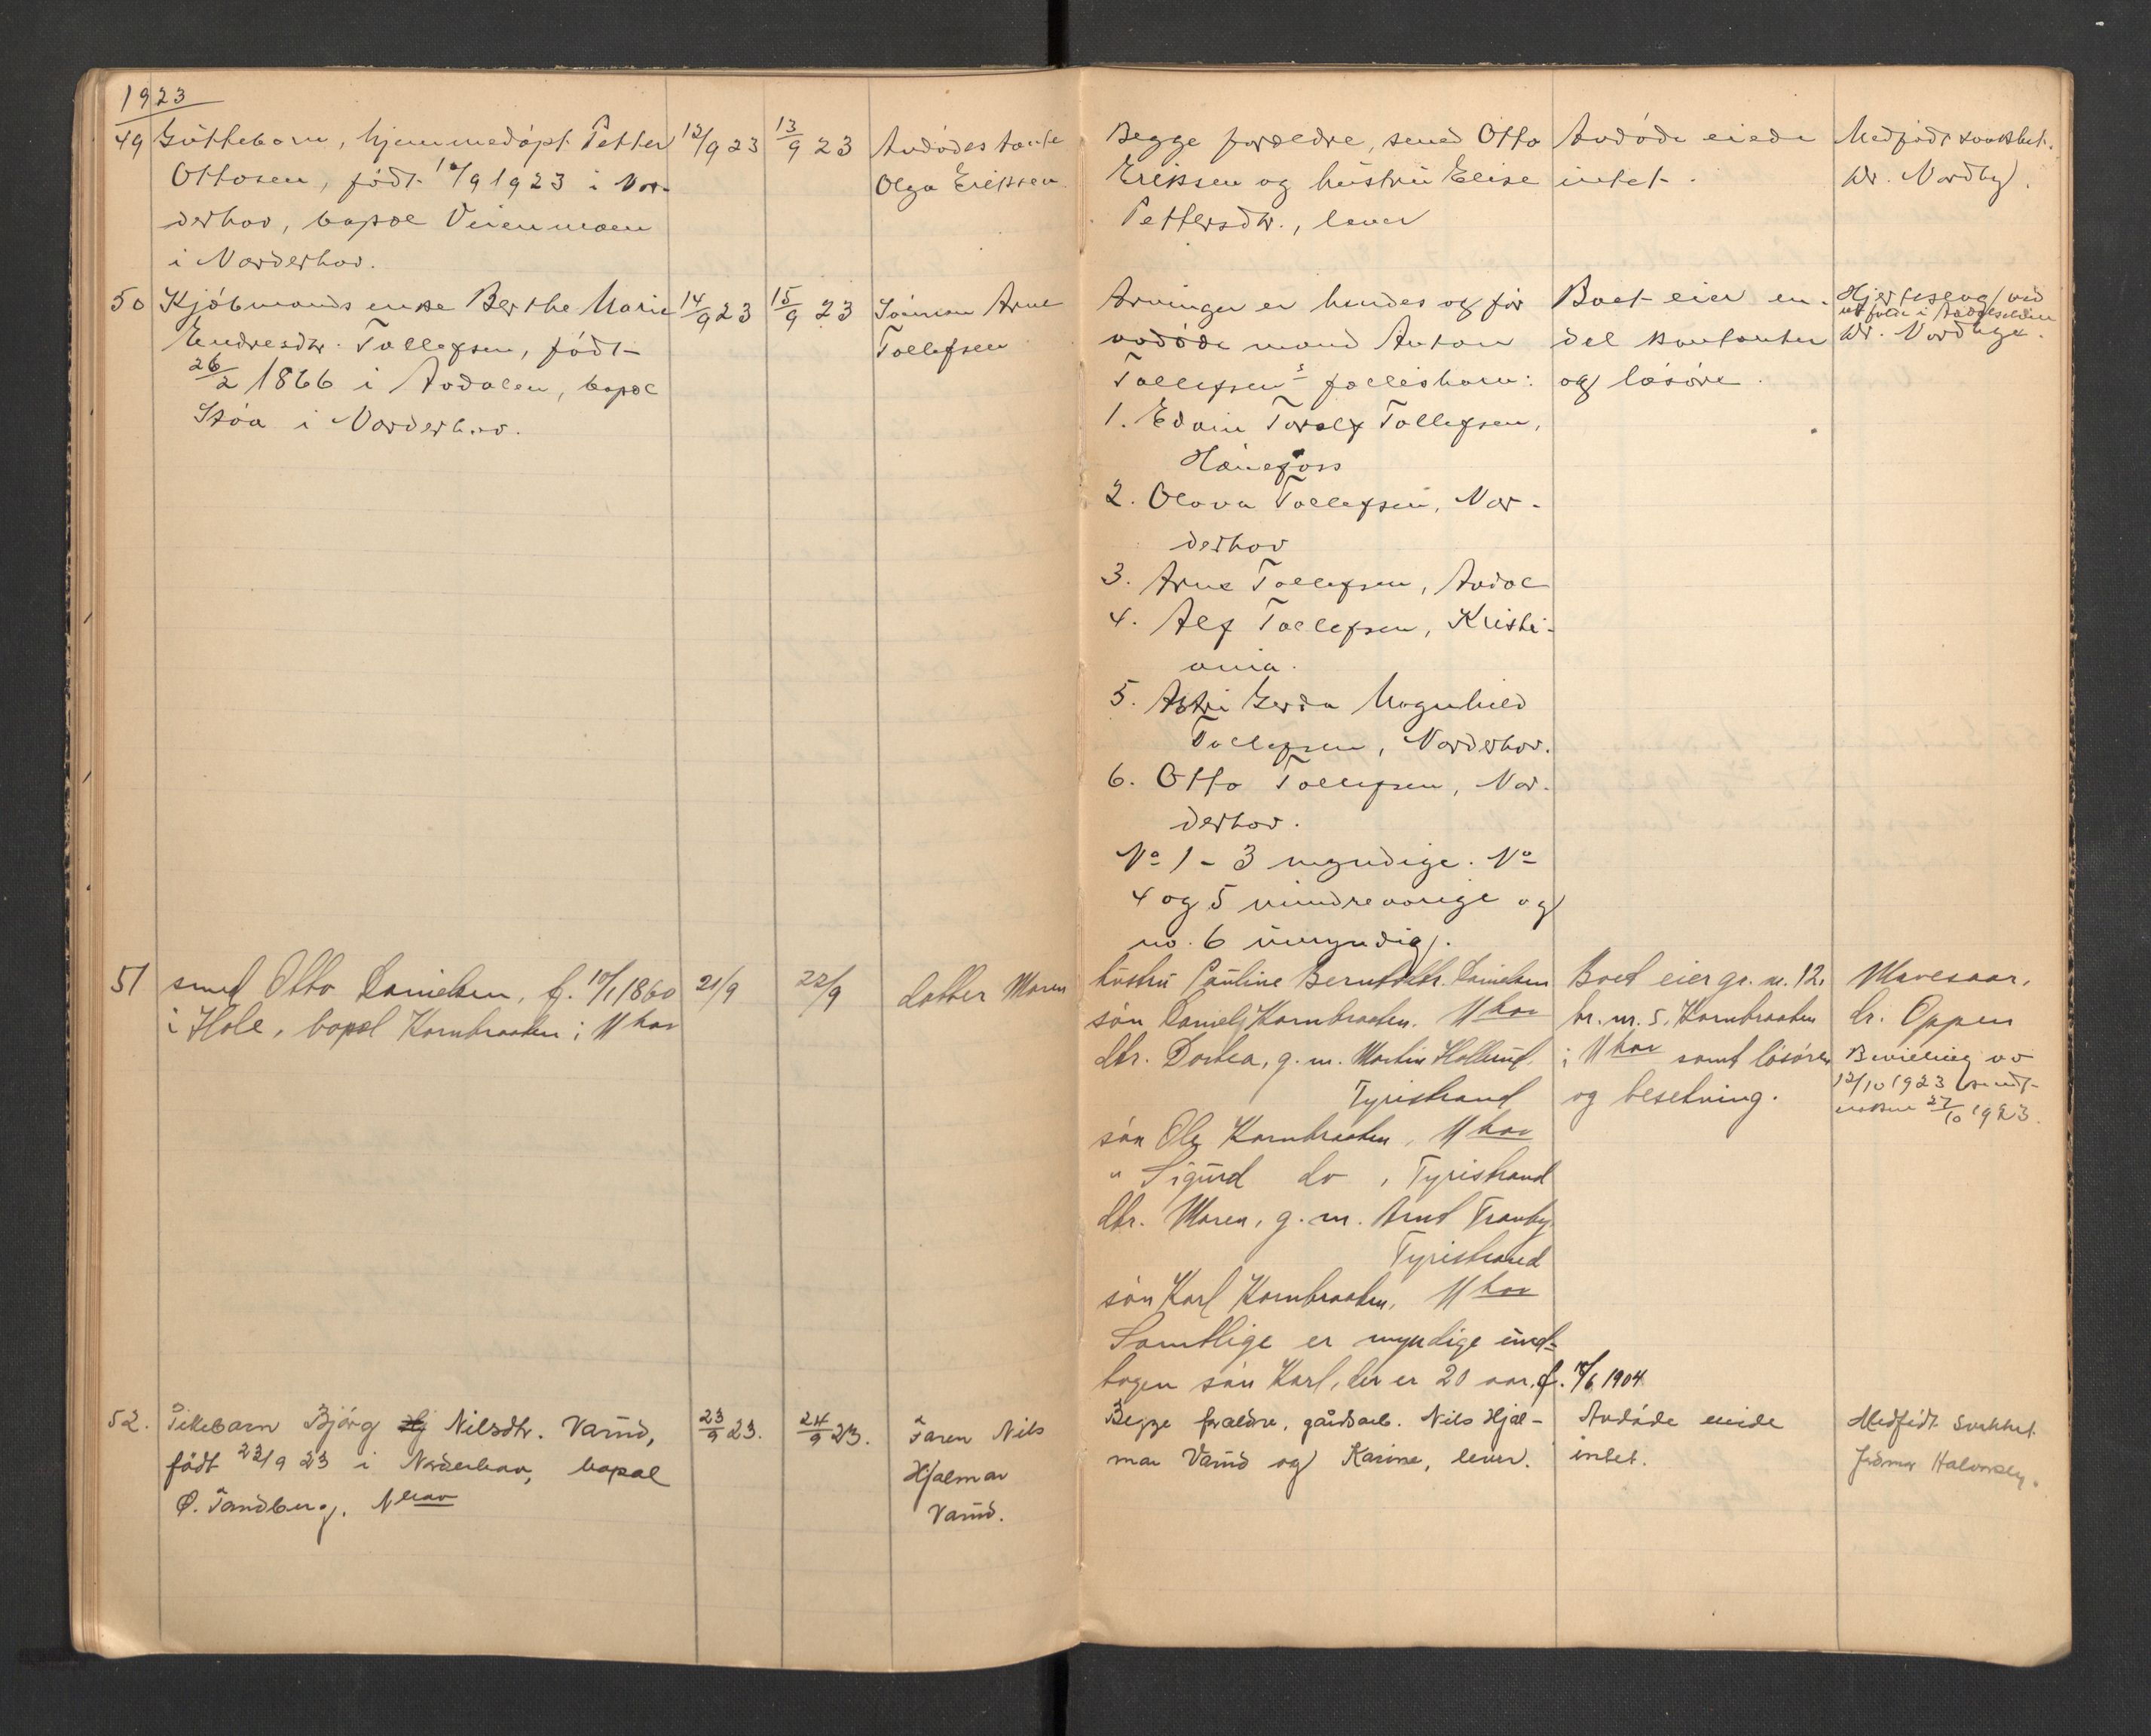 1923
49 Guttebarn, hjemmedøpt Petter
Ottosen, født 10/9 1923 i Nor-
derhov, bopæl Veienmoen
i Norderhov.
12/9 23
13/9 23
Avdødes tante
Olga Eriksen
Begge forældre, smed Otto
Eriksen og hustru Elise
Pettersdtr., lever
Avdøde eiede
intet.
Medfødt svakhet.
Dr. Nordby.
50 Kjøbmands enke Berthe Marie
Endresdtr. Tollefsen, født
26/2 1866 i Aadalen, bopæl
i Norderhov.
14/9 23
15/9 23
Sønnen Arne
Tollefsen
Arvinger er hendes og før
avdøde mand Anton
Tollefsens fællesbarn:
1. Edvin Toralf Tollefsen,
Hønefoss
2. Olava Tollefsen, Nor-
derhov
3. Arne Tollefsen, Aadal
4. Alf Tollefsen, Kristi-
ania.
5. Astri Gerda Magnhild
Tollefsen, Norderhov.
6. Otto Tollefsen, Nor-
derhov.
No 1 - 3 myndige. No
4 og 5 mindreaarige og
no. 6 umyndig.
Boet eier en
del kontanter
og løsøre.
Hjerteslag
Dr. Nordby.
51 smed Otto Danielsen, f. 10/1 1860
i Hole, bopæl Kornbraaten i Nhov
21/9
22/9
datter Maren
hustru Pauline Berntsdtr. Danielsen
søn Daniel Kornbraaten. Nhov
dtr. Dortea, g. m. Martin Hollerud,
Tyristrand
søn Ole Kornbraaten, Nhov
" Sigurd do , Tyristrand
dtr. Maren, g. m. Arnt Tranby
Tyristrand
søn Karl Kornbraaten, Nhov
Samtlige er myndige und-
tagen søn Karl, der er 20 aar, f. /6 1904
Boet eier gr. nr. 12,
br. nr. 5, Kornbraaten
i Nhov samt løsøre
og besetning.
Mavesaar,
dr. Oppen
Bevilling av
12/10 1923 sendt
27/10 1923.
52. Pikebarn Bjørg Nilsdtr. Varud,
født 23/9 23 i Norderhov, bopæl
Ø. Tandberg, Nhov
23/9 23.
24/9 23.
Faren Nils
Hjalmar
Varud.
Begge forældre, gårdsarb. Nils Hjal-
mar Varud og Karine, lever.
Avdøde eiede
intet.
Medfødt svakhet.
Jordmor Halvorsen.